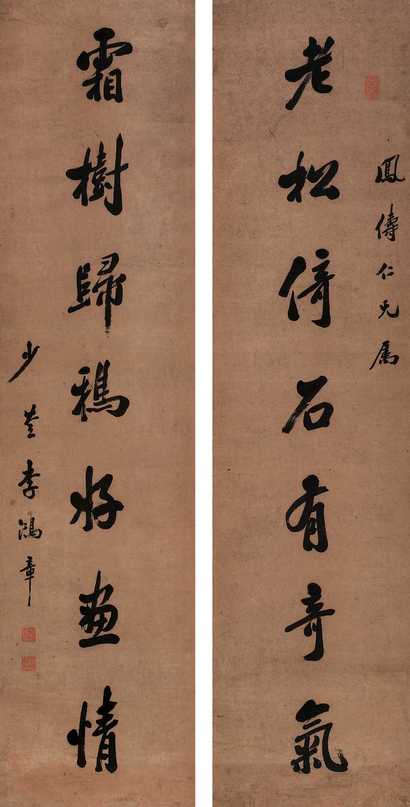 鳳儔仁兄属
老松倚石有奇氣
霜樹歸鴉好畫情
少荃李鴻章